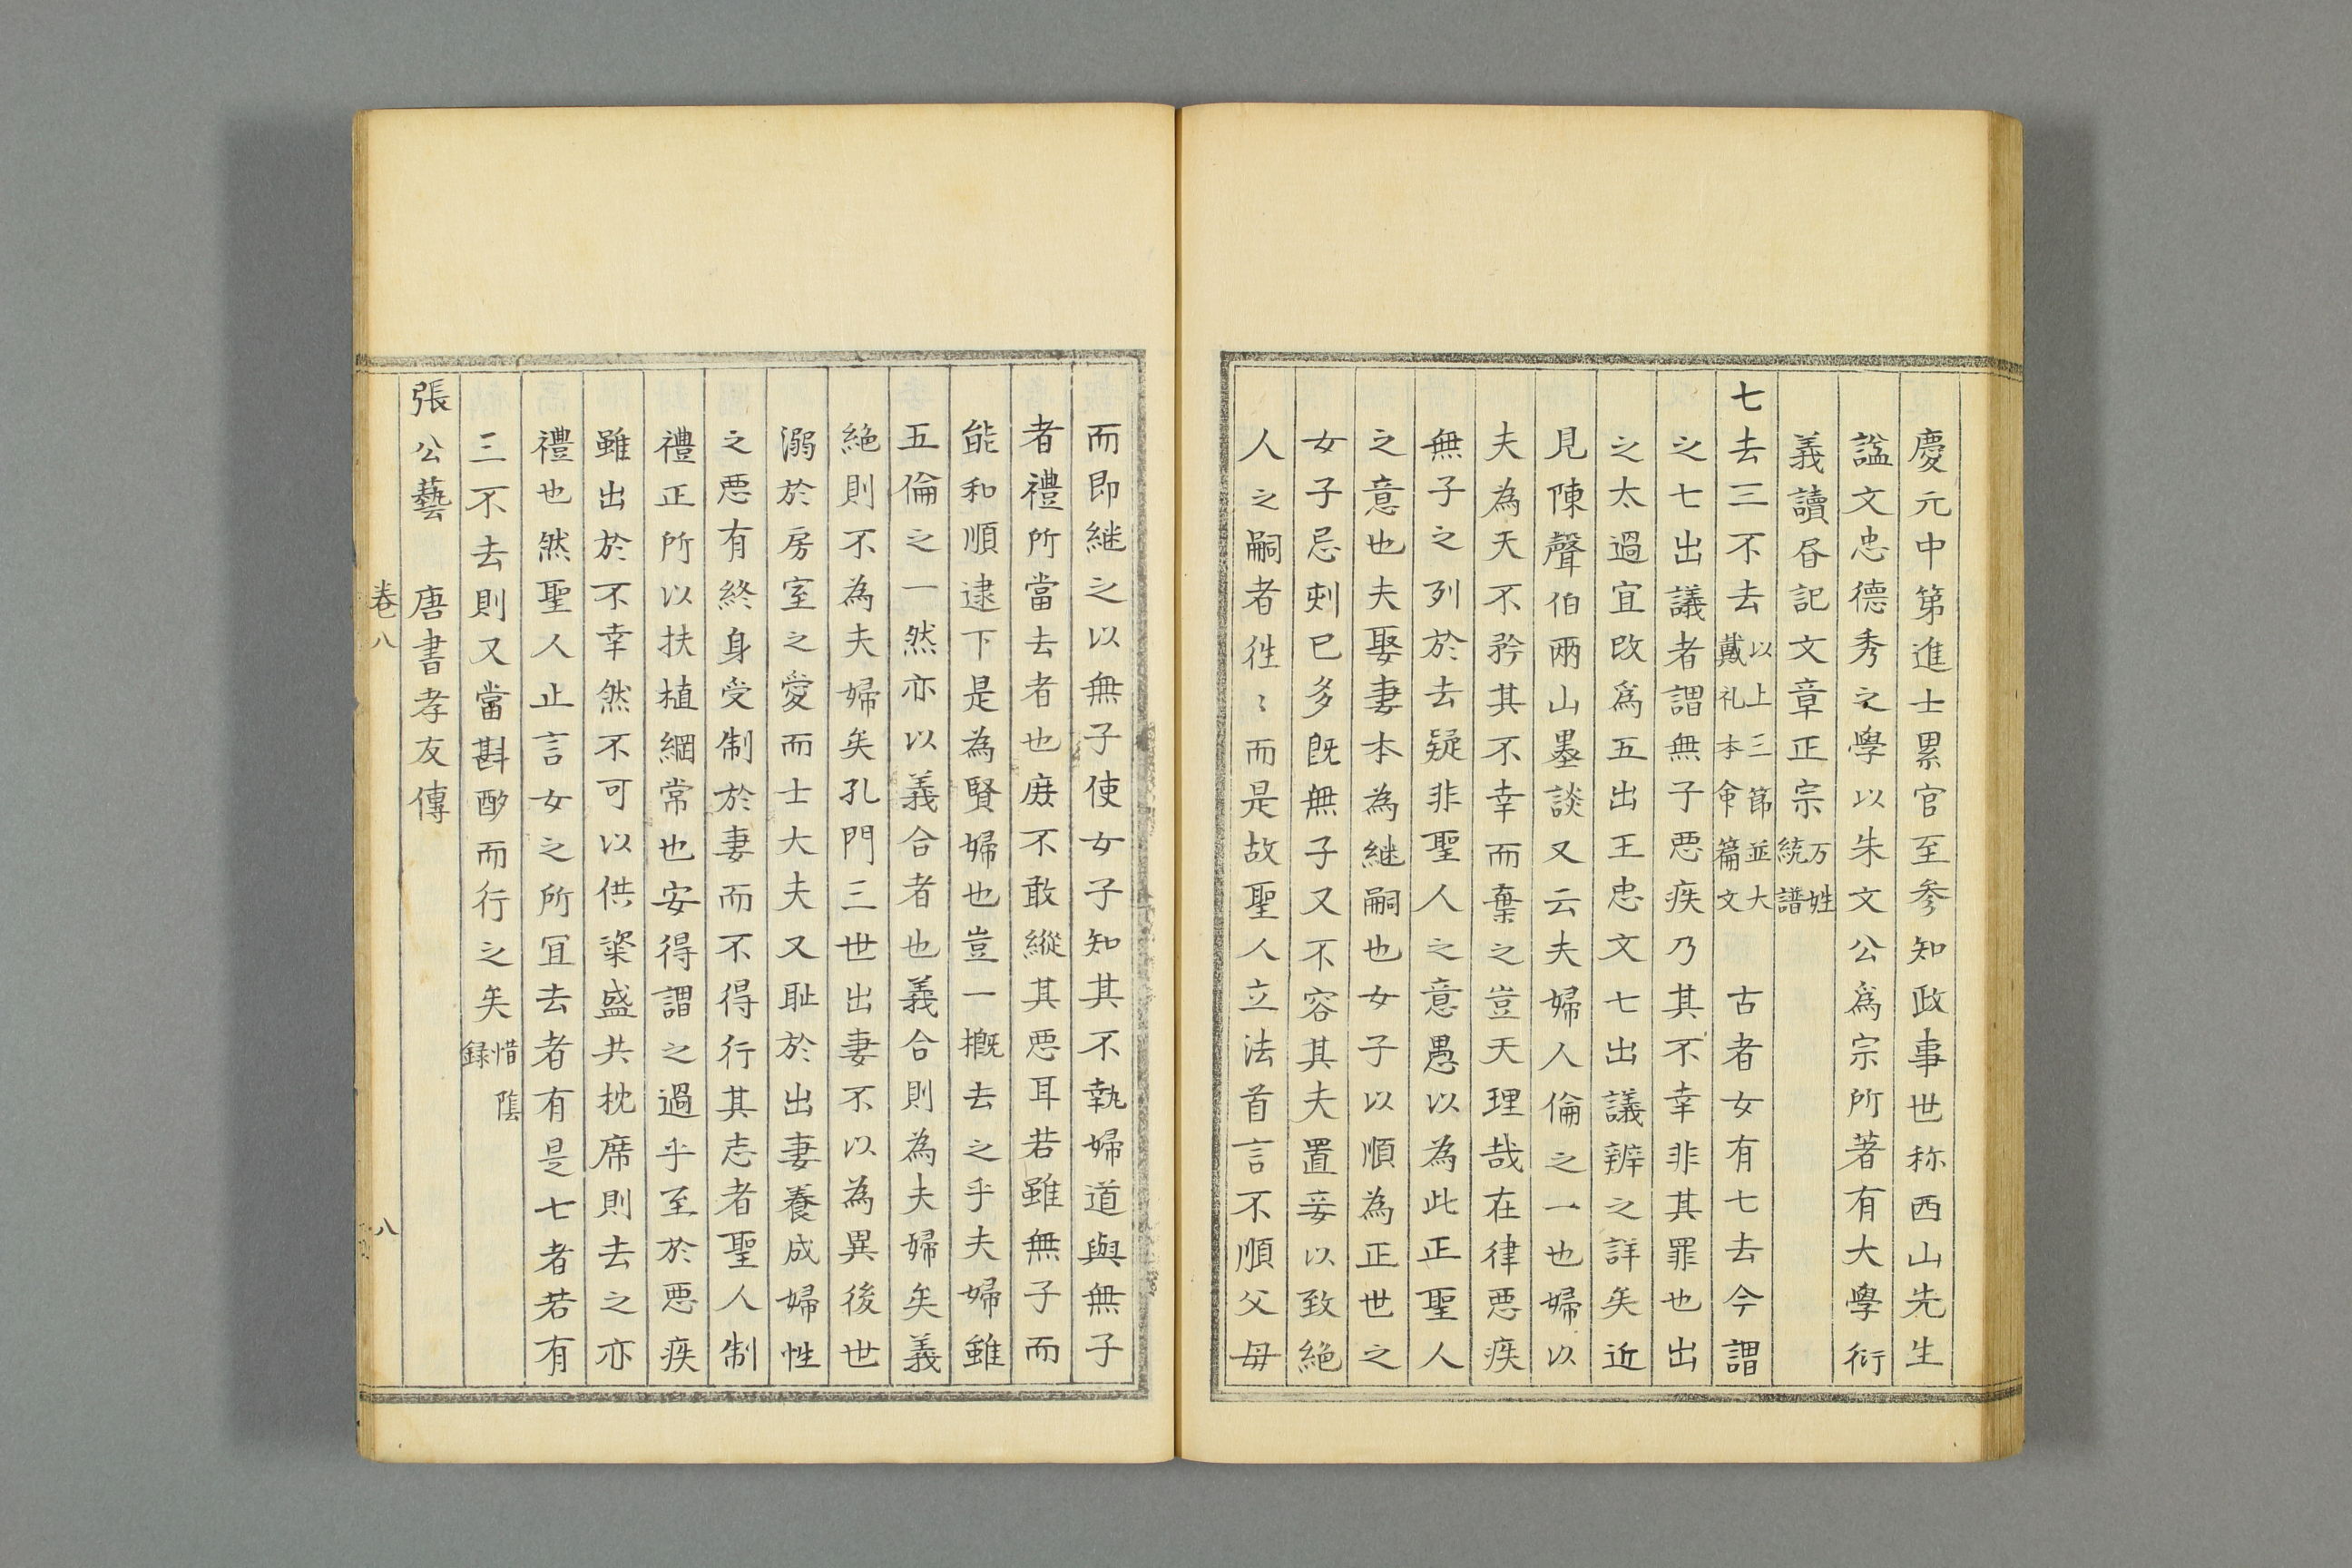 慶元中第進士累官至參知政事世称西山先生
諡文忠德秀之學以朱文公爲宗所著有大學衍
義讀昏記文章正宗万姓統譜
七去三不去以上三節並大戴礼本命篇文　古者女有七去今謂
之七出議者謂無子悪疾乃其不幸非其罪也出
之太過宜改爲五出王忠文七出議辨之詳矣近
見陳聲伯兩山墨談又云夫婦人倫之一也婦以
夫為天不矜其不幸而棄之豈天理哉在律悪疾
無子之列於去疑非聖人之意愚以為此正聖人
之意也夫娶妻本為継嗣也女子以順為正世之
女子忌刺已多既無子又不容其夫置妾以致絶
人之嗣者徃〻而是故聖人立法首言不順父母
而即継之以無子使女子知其不執婦道與無子
者禮所當去者也庻不敢縱其悪耳若雖無子而
能和順逮下是為賢婦也豈一概去之乎夫婦雖
五倫之一然亦以義合者也義合則為夫婦矣義
絶則不為夫婦矣孔門三世出妻不以為異後世
溺於房室之愛而士大夫又耻於出妻養成婦性
之悪有終身受制於妻而不得行其志者聖人制
禮正所以扶植綱常也安得謂之過乎至於悪疾
雖出於不幸然不可以供粢盛共枕席則去之亦
禮也然聖人止言女之所冝去者有是七者若有
三不去則又當斟酌而行之矣惜陰録
張公藝　唐書孝友傳
卷八　八